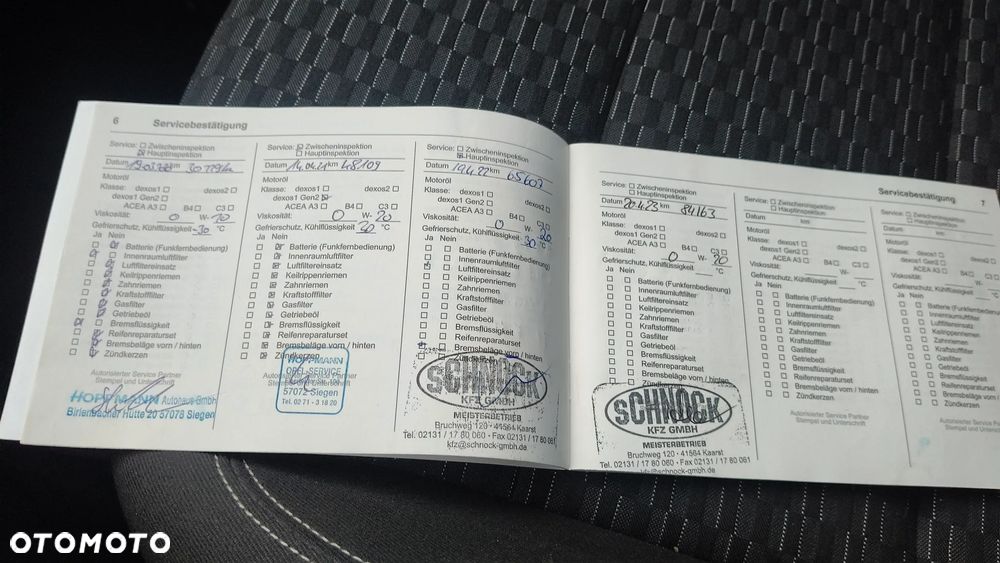 6 Servicebestätigung
Service: Zwischeninspektion
Hauptinspektion
Datum km
Motoröl
Klasse: dexos1 dexos2
dexos1 Gen2
ACEA A3 B4 C3
Viskosität: 0 W-
Gefrierschutz, Kühlflüssigkeit -30 °C
Ja Nein
Batterie (Funkfernbedienung)
Innenraumluftfilter
Luftfiltereinsatz
Keilrippenriemen
Zahnriemen
Kraftstofffilter
Gasfilter
Getriebeöl
Bremsflüssigkeit
Reifenreparaturset
Bremsbeläge vorn / hinten
Zündkerzen
Autorisierter Service Partner
Stempel und Unterschrift
HOFFMANN Autohaus GmbH
Birlenbacher Hütte 20 57078 Siegen
Service: Zwischeninspektion
Hauptinspektion
Datum 14.04.21 km 48109
Motoröl
Klasse: dexos1 dexos2
dexos1 Gen2
ACEA A3 B4 C3
Viskosität: 0 W-20
Gefrierschutz, Kühlflüssigkeit 30 °C
Ja Nein
Batterie (Funkfernbedienung)
Innenraumluftfilter
Luftfiltereinsatz
Keilrippenriemen
Zahnriemen
Kraftstofffilter
Gasfilter
Getriebeöl
Bremsflüssigkeit
Reifenreparaturset
Bremsbeläge vorn / hinten
Zündkerzen
Autorisierter Service Partner
HOFFMANN
OPEL-SERVICE
57072 Siegen
Tel. 02 71 - 3 18 20
Service: Zwischeninspektion
Hauptinspektion
Datum 19.4.22 km 65607
Motoröl
Klasse: dexos1 dexos2
dexos1 Gen2
ACEA A3 B4 C3
Viskosität: 0 W-20
Gefrierschutz, Kühlflüssigkeit 30 °C
Ja Nein
Batterie (Funkfernbedienung)
Innenraumluftfilter
Luftfiltereinsatz
Keilrippenriemen
Zahnriemen
Kraftstofffilter
Gasfilter
Getriebeöl
Bremsflüssigkeit
Reifenreparaturset
Bremsbeläge vorn / hinten
Zündkerzen
SCHNOCK
KFZ GMBH
MEISTERBETRIEB
Bruchweg 120 · 41564 Kaarst
Tel. 02131 / 17 80 060 · Fax 02131 / 17 80 061
kfz@schnock-gmbh.de
Servicebestätigung 7
Service: Zwischeninspektion
Hauptinspektion
Datum 20.4.23 km 84163
Motoröl
Klasse: dexos1 dexos2
dexos1 Gen2
ACEA A3 B4 C3
Viskosität: 0 W-20
Gefrierschutz, Kühlflüssigkeit °C
Ja Nein
Batterie (Funkfernbedienung)
Innenraumluftfilter
Luftfiltereinsatz
Keilrippenriemen
Zahnriemen
Kraftstofffilter
Gasfilter
Getriebeöl
Bremsflüssigkeit
Reifenreparaturset
Bremsbeläge vorn / hinten
Zündkerzen
SCHNOCK
KFZ GMBH
MEISTERBETRIEB
Bruchweg 120 · 41564 Kaarst
Tel. 02131 / 17 80 060 · Fax 02131 / 17 80 061
Service: Zwischeninspektion
Hauptinspektion
Datum km
Motoröl
Klasse: dexos1 dexos2
dexos1 Gen2
ACEA A3 B4 C3
Viskosität: W-
Gefrierschutz, Kühlflüssigkeit °C
Ja Nein
Batterie (Funkfernbedienung)
Innenraumluftfilter
Luftfiltereinsatz
Keilrippenriemen
Zahnriemen
Kraftstofffilter
Gasfilter
Getriebeöl
Bremsflüssigkeit
Reifenreparaturset
Bremsbeläge vorn / hinten
Zündkerzen
Autorisierter Service Partner
Stempel und Unterschrift
Service: Zwischeninspektion
Hauptinspektion
Datum km
Motoröl
Klasse: dexos1
dexos1 Gen2
ACEA A3 B4
Viskosität:
Gefrierschutz, Kühlflüssigkeit
Ja Nein
Innenraumluftfilter
Luftfiltereinsatz
Keilrippenriemen
Zahnriemen
Kraftstofffilter
Gasfilter
Getriebeöl
Bremsflüssigkeit
Reifenreparaturset
Bremsbeläge vorn
Zündkerzen
Autorisierter Service Partner
Stempel und Unterschrift
OTOMOTO